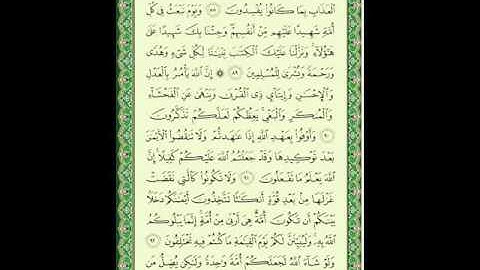 ٱلْعَذَابِ بِمَا كَانُوا۟ يُفْسِدُونَ ٨٨ وَيَوْمَ نَبْعَثُ فِى كُلِّ
أُمَّةٍ شَهِيدًا عَلَيْهِم مِّنْ أَنفُسِهِمْ وَجِئْنَا بِكَ شَهِيدًا عَلَىٰ
هَـٰٓؤُلَآءِ وَنَزَّلْنَا عَلَيْكَ ٱلْكِتَـٰبَ تِبْيَـٰنًا لِّكُلِّ شَىْءٍ وَهُدًى
وَرَحْمَةً وَبُشْرَىٰ لِلْمُسْلِمِينَ ٨٩ ۞ إِنَّ ٱللَّهَ يَأْمُرُ بِٱلْعَدْلِ
وَٱلْإِحْسَـٰنِ وَإِيتَآئِ ذِى ٱلْقُرْبَىٰ وَيَنْهَىٰ عَنِ ٱلْفَحْشَآءِ
وَٱلْمُنكَرِ وَٱلْبَغْىِ يَعِظُكُمْ لَعَلَّكُمْ تَذَكَّرُونَ
٩٠ وَأَوْفُوا۟ بِعَهْدِ ٱللَّهِ إِذَا عَـٰهَدتُّمْ وَلَا تَنقُضُوا۟ ٱلْأَيْمَـٰنَ
بَعْدَ تَوْكِيدِهَا وَقَدْ جَعَلْتُمُ ٱللَّهَ عَلَيْكُمْ كَفِيلًا إِنَّ
ٱللَّهَ يَعْلَمُ مَا تَفْعَلُونَ ٩١ وَلَا تَكُونُوا۟ كَٱلَّتِى نَقَضَتْ
غَزْلَهَا مِنۢ بَعْدِ قُوَّةٍ أَنكَـٰثًا تَتَّخِذُونَ أَيْمَـٰنَكُمْ دَخَلًۢا
بَيْنَكُمْ أَن تَكُونَ أُمَّةٌ هِىَ أَرْبَىٰ مِنْ أُمَّةٍ إِنَّمَا يَبْلُوكُمُ
ٱللَّهُ بِهِۦ وَلَيُبَيِّنَنَّ لَكُمْ يَوْمَ ٱلْقِيَـٰمَةِ مَا كُنتُمْ فِيهِ تَخْتَلِفُونَ ٩٢
وَلَوْ شَآءَ ٱللَّهُ لَجَعَلَكُمْ أُمَّةً وَٰحِدَةً وَلَـٰكِن يُضِلُّ مَن